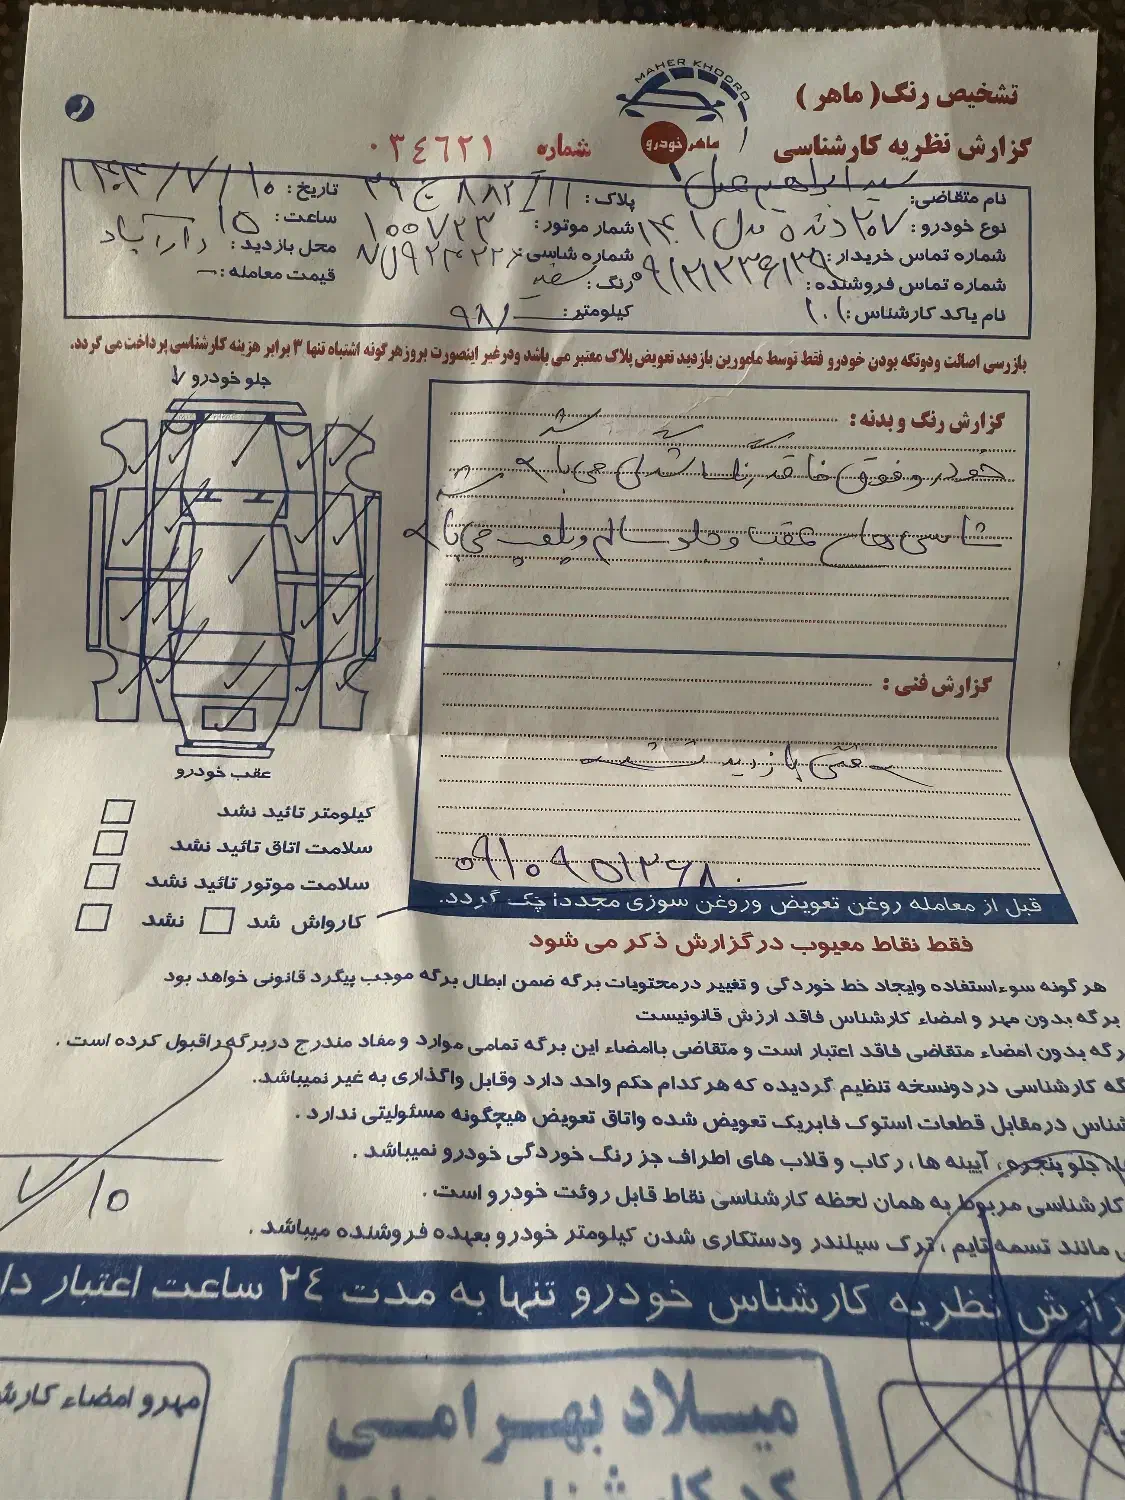 تشخیص رنگ( ماهر )
MAHER KHODRO
ماهر خودرو
گزارش نظریه کارشناسی
شماره ٠٣٤٦٢١
نام متقاضی: سید ابراهیم
پلاک: ١١ / ٨٨٢ ج ٣٩
تاریخ: ١٤٠٣/٧/١٠
نوع خودرو: ٢٠٧ دنده مدل ١٤٠١
شمار موتور: ١٠٠٧٢٣
ساعت: ١٥
شماره تماس خریدار:
شماره شاسی:
محل بازدید: دارآباد
شماره تماس فروشنده:
رنگ: سفید
قیمت معامله: –
نام یاکد کارشناس: ١٠١
کیلومتر: ٩٨/
بازرسی اصالت ودوتکه بودن خودرو فقط توسط مامورین بازدید تعویض پلاک معتبر می باشد ودرغیر اینصورت بروزهرگونه اشتباه تنها ٣ برابر هزینه کارشناسی پرداخت می گردد.
جلو خودرو
عقب خودرو
گزارش رنگ و بدنه :
خودرو فوق فاقد رنگ شدگی می باشد
شاسی های عقب و جلو سالم و پلمپ می باشد
گزارش فنی :
فنی بازدید نشد
٠٩١٠٩٥١٣٦٨٠
کیلومتر تائید نشد
سلامت اتاق تائید نشد
سلامت موتور تائید نشد
کارواش شد نشد
قبل از معامله روغن تعویض وروغن سوزی مجددا چک گردد.
فقط نقاط معیوب در گزارش ذکر می شود
هرگونه سوءاستفاده وایجاد خط خوردگی و تغییر در محتویات برگه ضمن ابطال برگه موجب پیگرد قانونی خواهد بود
برگه بدون مهر و امضاء کارشناس فاقد ارزش قانونیست
رگه بدون امضاء متقاضی فاقد اعتبار است و متقاضی باامضاء این برگه تمامی موارد و مفاد مندرج دربرگه راقبول کرده است .
گه کارشناسی در دونسخه تنظیم گردیده که هر کدام حکم واحد دارد وقابل واگذاری به غیر نمیباشد.
شناس در مقابل قطعات استوک فابریک تعویض شده واتاق تعویض هیچگونه مسئولیتی ندارد .
جلو پنجره، آیینه ها، رکاب و قلاب های اطراف جز رنگ خوردگی خودرو نمیباشد .
کارشناسی مربوط به همان لحظه کارشناسی نقاط قابل روئت خودرو است .
مانند تسمه تایم ، ترک سیلندر ودستکاری شدن کیلومتر خودرو بعهده فروشنده میباشد .
٧/١٠
زارش نظریه کارشناس خودرو تنها به مدت ٢٤ ساعت اعتبار دا
مهر و امضاء کارش
میلاد بهرامی